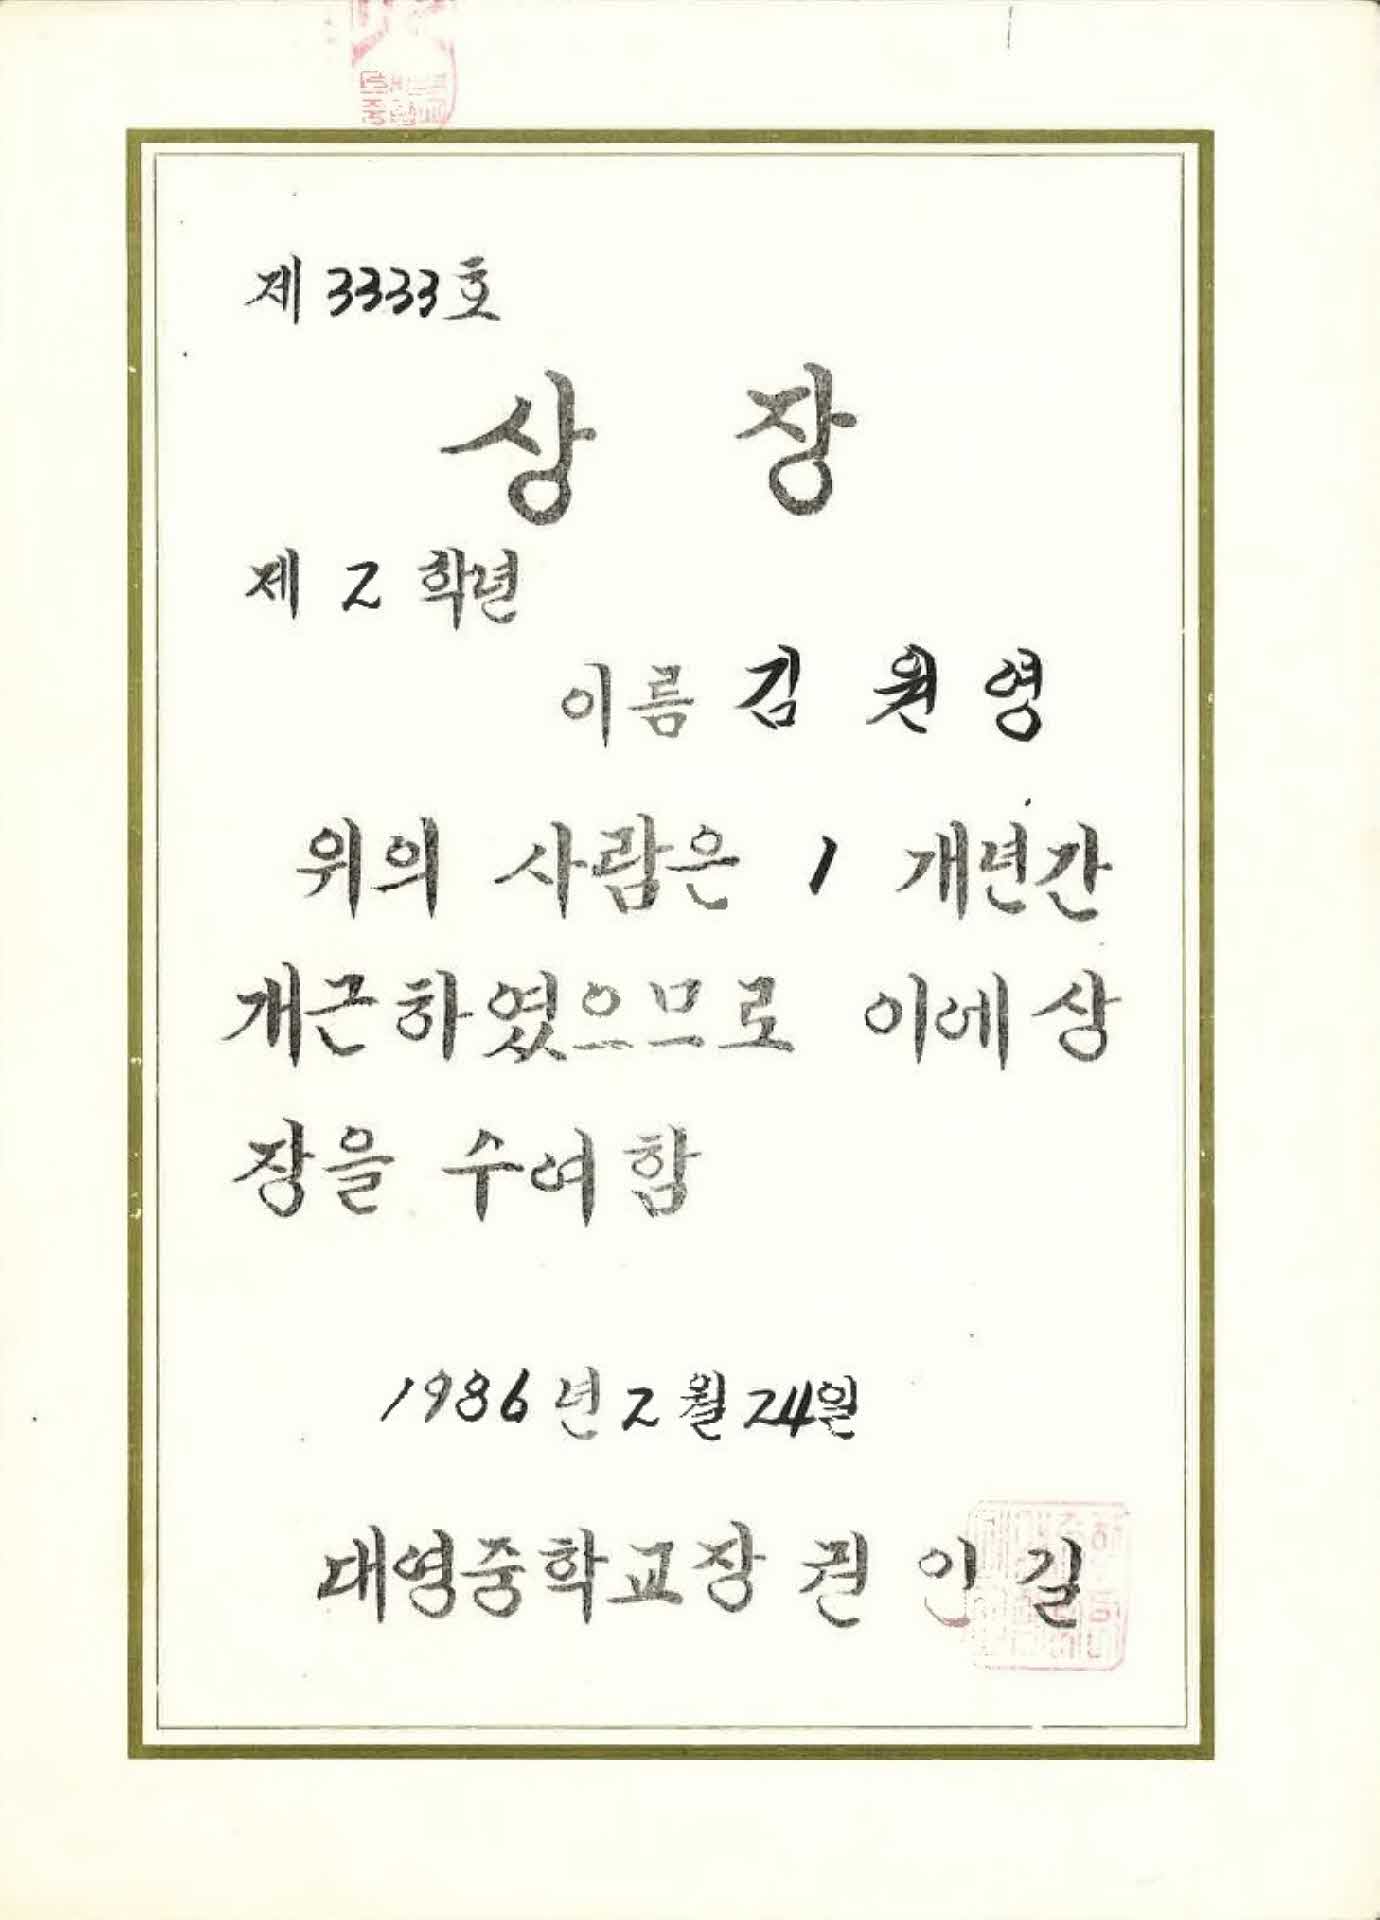 제 3333 호
상 장
제 2 학년
이름 김 원 영
위의 사람은 1 개년간
개근하였으므로 이에 상
장을 수여함
1986 년 2 월 24 일
대영중학교장 권 인 길